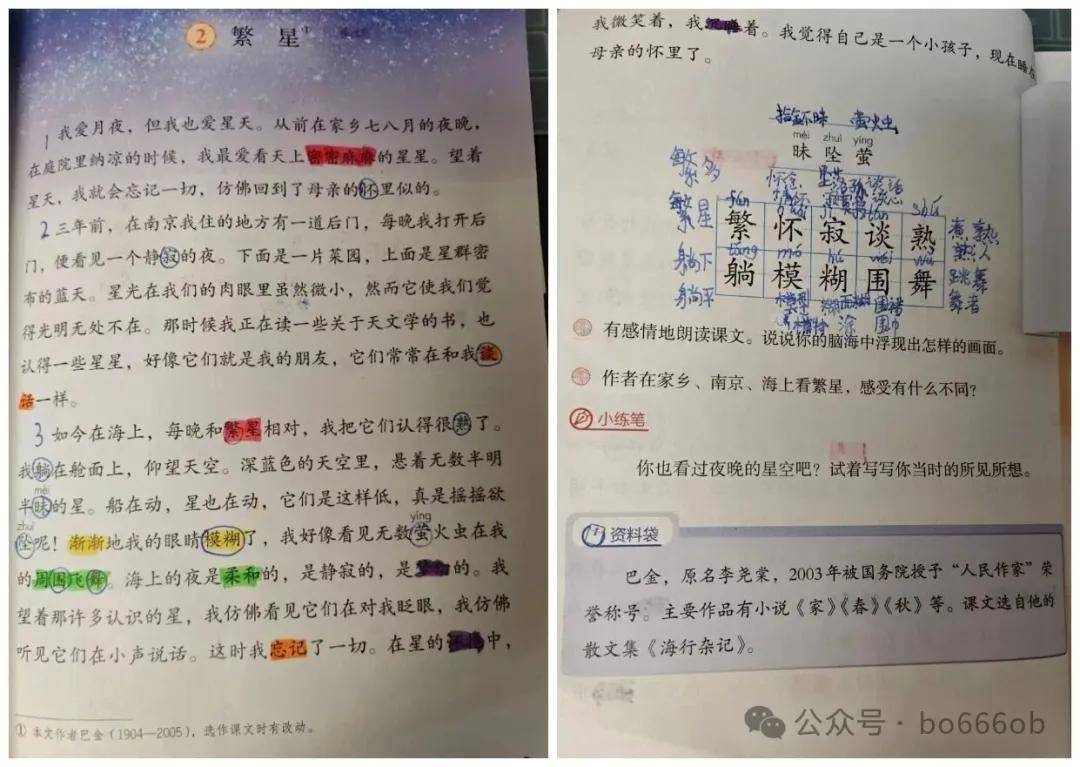 2 繁 星①
1 我爱月夜，但我也爱星天。从前在家乡七八月的夜晚，
在庭院里纳凉的时候，我最爱看天上密密麻麻的星星。望着
星天，我就会忘记一切，仿佛回到了母亲的怀里似的。
2 三年前，在南京我住的地方有一道后门，每晚我打开后
门，便看见一个静寂的夜。下面是一片菜园，上面是星群密
布的蓝天。星光在我们的肉眼里虽然微小，然而它使我们觉
得光明无处不在。那时候我正在读一些关于天文学的书，也
认得一些星星，好像它们就是我的朋友，它们常常在和我谈
话一样。
3 如今在海上，每晚和繁星相对，我把它们认得很熟了。
我躺在舱面上，仰望天空。深蓝色的天空里，悬着无数半明
mèi
半昧的星。船在动，星也在动，它们是这样低，真是摇摇欲
zhuì yíng
坠呢！渐渐地我的眼睛模糊了，我好像看见无数萤火虫在我
的周围飞舞。海上的夜是柔和的，是静寂的，是的。我
望着那许多认识的星，我仿佛看见它们在对我眨眼，我仿佛
听见它们在小声说话。这时我忘记了一切。在星的中，
① 本文作者巴金（1904—2005），选作课文时有改动。
我微笑着，我着。我觉得自己是一个小孩子，现在睡在
母亲的怀里了。
萤火虫
mèi zhuì yíng
昧 坠 萤
繁多
繁星
繁 怀 寂 谈 熟
煮熟
熟人
躺下
躺 模 糊 围 舞
跳舞
躺平
舞者
围巾
有感情地朗读课文。说说你的脑海中浮现出怎样的画面。
作者在家乡、南京、海上看繁星，感受有什么不同？
小练笔
你也看过夜晚的星空吧？试着写写你当时的所见所想。
资料袋
巴金，原名李尧棠，2003年被国务院授予“人民作家”荣
誉称号。主要作品有小说《家》《春》《秋》等。课文选自他的
散文集《海行杂记》。
公众号·bo666ob